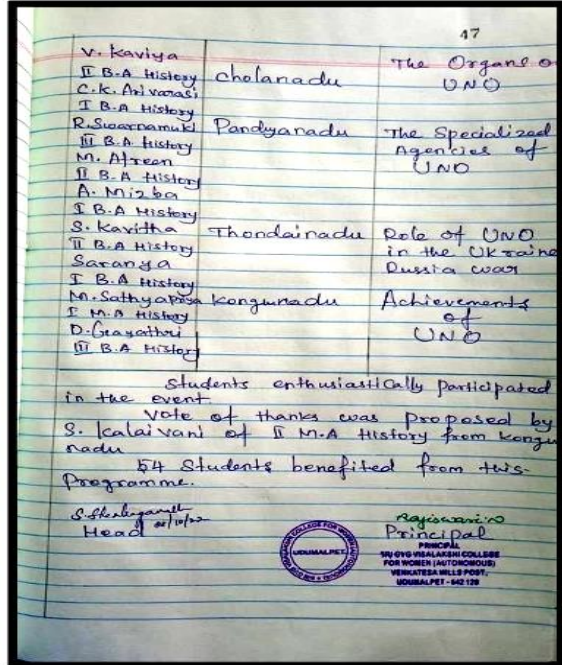 47
V. Kaviya
II B.A History
C.K. Arivarasi
I B.A History
cholanadu
The Organs o
UNO
R. Swarnamuki
III B.A History
M. Afreen
II B.A History
A. Mizba
I B.A History
Pandyanadu
The Specialized
Agencies of
UNO
S. Kavitha
II B.A History
Saranya
I B.A History
Thondainadu
Role of UNO
in the Ukraine
Russia war
M. Sathyapriya
I M.A History
D. Gayathri
III B.A History
kongunadu
Achievements
of
UNO
Students enthusiastically participated
in the event
Vote of thanks was proposed by
S. Kalaivani of II M.A History from kongu
nadu
54 Students benefited from this
Programme.
Head
Rajiswari
Principal
PRINCIPAL
SRI GVG VISALAKSHI COLLEGE
FOR WOMEN (AUTONOMOUS)
VENKATESA MILLS POST,
UDUMALPET - 642 128
UDUMALPET